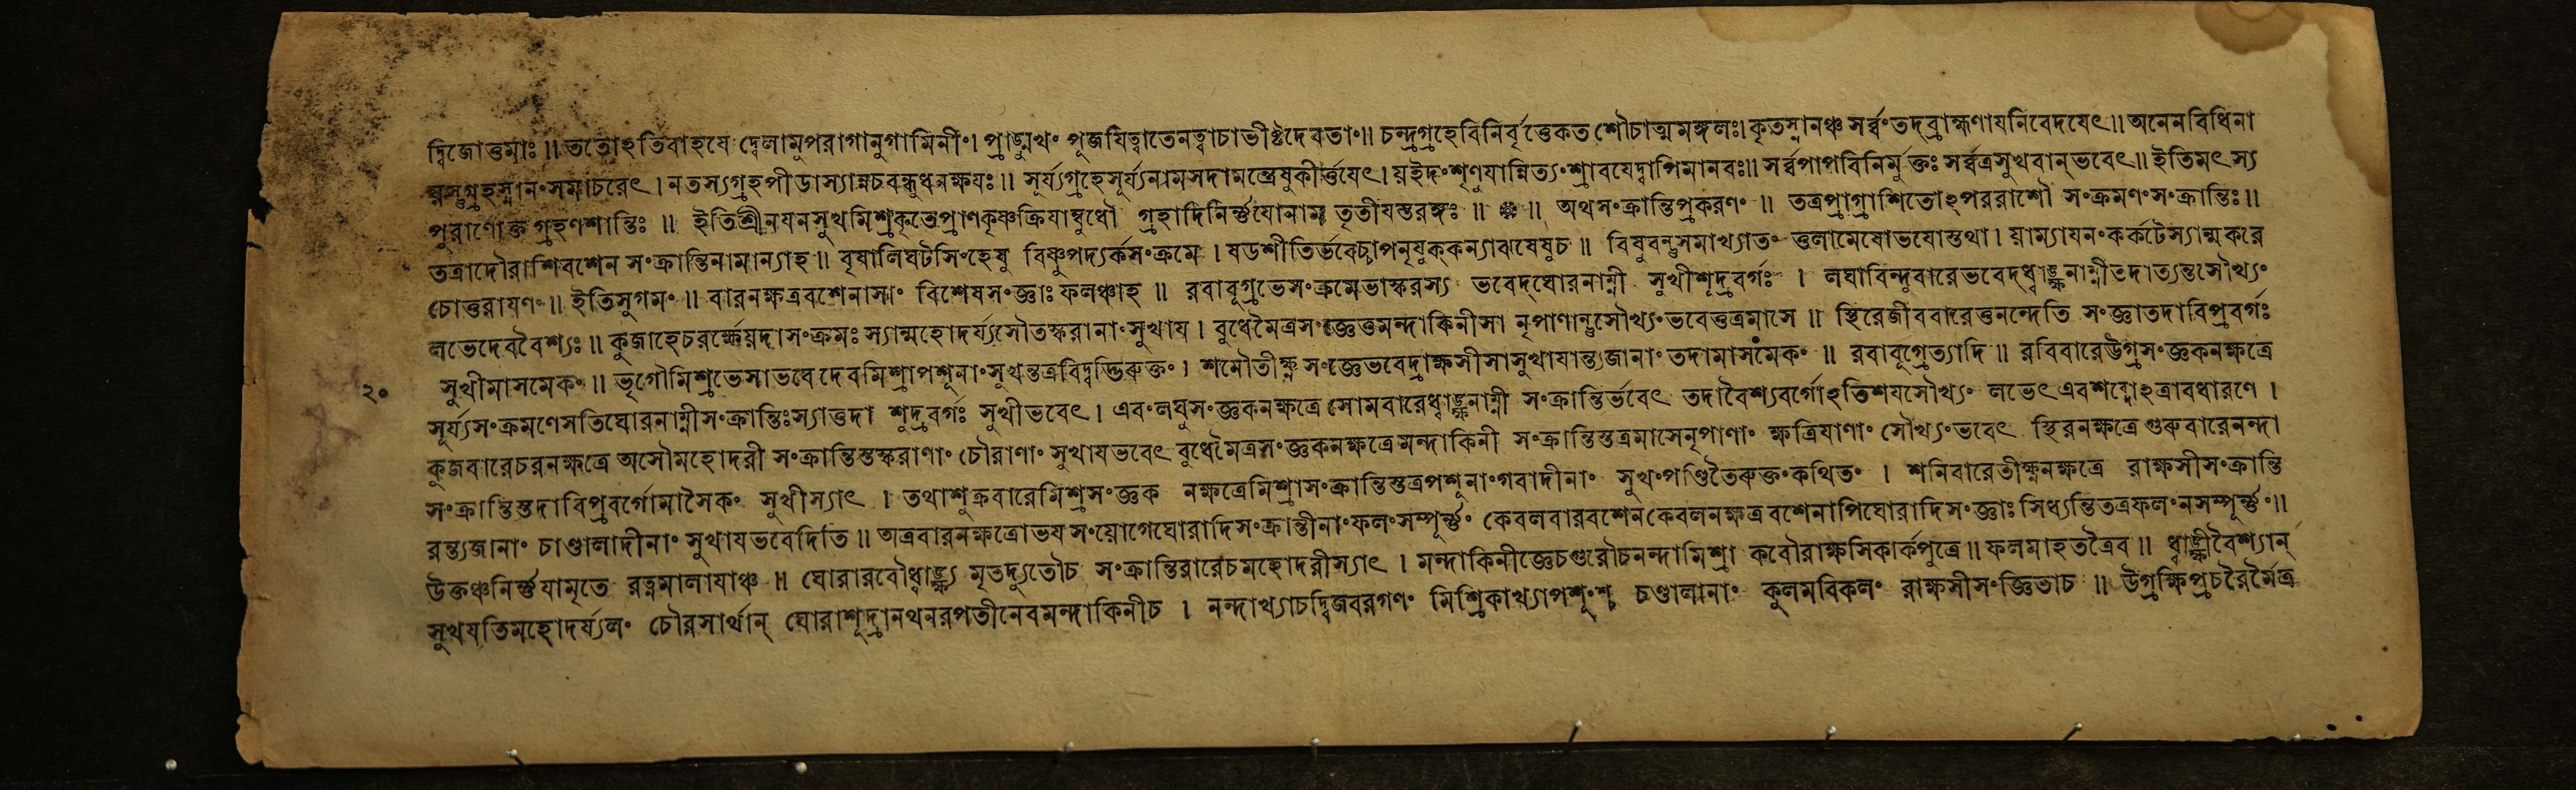 দ্বিজোত্তমাঃ ॥ ততোঽতিবাহযে দ্বেলামুপরাগানুগামিনীং। প্রাঙ্মুখং পূজযিত্বাতেনত্বাচাভীষ্টদেবতাং॥ চন্দ্রগ্রহেবিনির্বৃত্তেকত শৌচাত্মমঙ্গলঃ। কৃতস্নানঞ্চ সর্ব্বং তদ্ব্রাহ্মণাযনিবেদযেৎ॥ অনেনবিধিনা
যস্তুগ্রহস্নানং সমাচরেৎ। নতস্যগ্রহপীডাস্যান্নচবন্ধুধনক্ষযঃ॥ সূর্য্যগ্রহেসূর্য্যনামসদামন্ত্রেষুকীর্ত্তযেৎ। য়ইদং শৃণুযান্নিত্যং শ্রাবযেদ্বাপিমানবঃ॥ সর্ব্বপাপবিনির্মুক্তঃ সর্ব্বত্রসুখবান্ভবেৎ॥ ইতিমৎস্য
পুরাণোক্ত গ্রহণশান্তিঃ ॥ ইতিশ্রীনযনসুখমিশ্রকৃতেপ্রাণকৃষ্ণক্রিযাম্বুধৌ গ্রহাদিনির্ণ্ণযোনাম তৃতীযস্তরঙ্গঃ ॥ ❁ ॥ অথসংক্রান্তিপ্রকরণং ॥ তত্রপ্রাগ্রাশিতোঽপররাশৌ সংক্রমণং সংক্রান্তিঃ॥
তত্রাদৌরাশিবশেন সংক্রান্তিনামান্যাহ॥ বৃষালিঘটসিংহেষু বিষ্ণুপদ্যর্কসংক্রমে। ষডশীতির্ভবেচ্চাপনৃযুক্কন্যাঝষেষুচ ॥ বিষুবন্তুসমাখ্যাতং ত্তলামেষোভযোস্তথা। য়াম্যাযনং কর্কটেস্যান্মকরে
চোত্তরাযণং॥ ইতিসুগমং॥ বারনক্ষত্রবশেনাসাং বিশেষসংজ্ঞাঃ ফলঞ্চাহ ॥ রবাবুগ্রভেসংক্রমেভাস্করস্য ভবেদ্ঘোরনাম্নী সুখীশূদ্রবর্গঃ । লঘাবিন্দুবারেভবেদ্ধ্বাঙ্ক্ষনাম্নীতদাত্যন্তসৌখ্যং
লভেদেববৈশ্যঃ॥ কুজাহেচরর্ক্ষেয়দাসংক্রমঃ স্যান্মহোদর্য্যসৌতস্করানাং সুখায। বুধেমৈত্রসংজ্ঞেত্তমন্দাকিনীসা নৃপাণান্তুসৌখ্যং ভবেত্তত্রমাসে ॥ স্থিরেজীববারেত্তনন্দেতি সংজ্ঞাতদাবিপ্রবর্গঃ
২০ সুখীমাসমেকং॥ ভৃগৌমিশ্রভেসাভবে দেবমিশ্রাপশূনাং সুখন্তত্রবিদ্বদ্ভিরুক্তং। শনৌতীক্ষ্ণসংজ্ঞেভবেদ্রাক্ষসীসাসুখাযান্ত্যজানাং তদামাসমেকং ॥ রবাবুগ্রেত্যাদি॥ রবিবারেউগ্রসংজ্ঞকনক্ষত্রে
সূর্য্যসংক্রমণেসতিঘোরনাম্নীসংক্রান্তিঃস্যাত্তদা শূদ্রবর্গঃ সুখীভবেৎ। এবং লঘুসংজ্ঞকনক্ষত্রে সোমবারেধ্বাঙ্ক্ষনাম্নী সংক্রান্তির্ভবেৎ তদাবৈশ্যবর্গোঽতিশযসৌখ্যং লভেৎ এবশব্দোঽত্রাবধারণে।
কুজবারেচরনক্ষত্রে অসৌমহোদরী সংক্রান্তিস্তস্করাণাং চৌরাণাং সুখাযভবেৎ বুধেমৈত্রসংজ্ঞকনক্ষত্রেমন্দাকিনী সংক্রান্তিস্তত্রমাসেনৃপাণাং ক্ষত্রিযাণাং সৌখ্যং ভবেৎ স্থিরনক্ষত্রে গুরুবারেনন্দা
সংক্রান্তিস্তদাবিপ্রবর্গোমাসৈকং সুখীস্যাৎ । তথাশুক্রবারেমিশ্রসংজ্ঞক নক্ষত্রেমিশ্রাসংক্রান্তিস্তত্রপশূনাং গবাদীনাং সুখং পণ্ডিতৈরুক্তং কথিতং । শনিবারেতীক্ষ্ণনক্ষত্রে রাক্ষসীসংক্রান্তি
রন্ত্যজানাং চাণ্ডালাদীনাং সুখাযভবেদিতি॥ অত্রবারনক্ষত্রোভযসংয়োগেঘোরাদিসংক্রান্তীনাং ফলং সম্পূর্ণ্ণং কেবলবারবশেনকেবলনক্ষত্রবশেনাপিঘোরাদিসংজ্ঞাঃ সিধ্যন্তিতত্রফলং নসম্পূর্ণ্ণং॥
উক্তঞ্চনির্ণ্ণযামৃতে রত্নমালাযাঞ্চ ॥ ঘোরারবৌধ্বাঙ্ক্ষ্য মৃতদ্যুতৌচ সংক্রান্তিরারেচমহোদরীস্যাৎ । মন্দাকিনীজ্ঞেচগুরৌচনন্দামিশ্রা কবৌরাক্ষসিকার্কপুত্রে॥ ফলমাহতত্রৈব॥ ধ্বাঙ্ক্ষীবৈশ্যান্
সুখযতিমহোদর্য্যলং চৌরসার্থান্ ঘোরাশূদ্রানথনরপতীনেবমন্দাকিনীচ । নন্দাখ্যাচদ্বিজবরগণং মিশ্রিকাখ্যাপশূংশ্চ চণ্ডালানাং কুলমবিকলং রাক্ষসীসংজ্ঞিতাচ ॥ উগ্রক্ষিপ্রচরৈর্মৈত্র